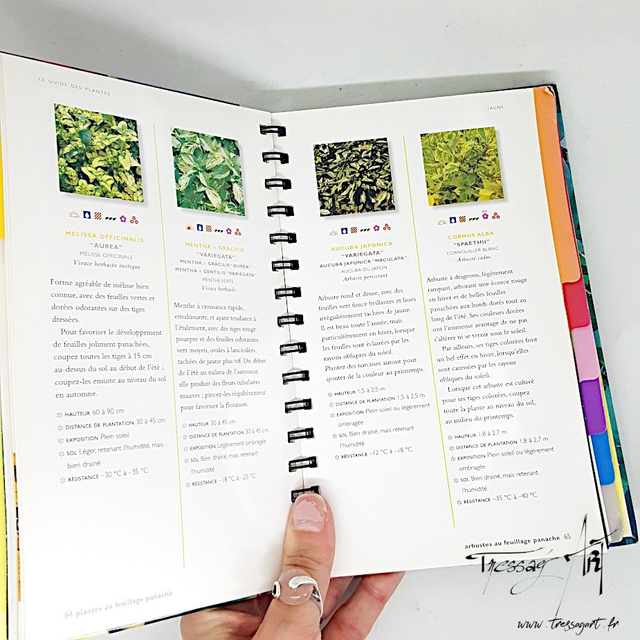 LE GUIDE DES PLANTES
MELISSA OFFICINALIS
"AUREA"
MÉLISSE OFFICINALE
Vivace herbacée rustique
Forme agréable de mélisse bien
connue, avec des feuilles vertes et
dorées odorantes sur des tiges
dressées.
Pour favoriser le développement
de feuilles joliment panachées,
coupez toutes les tiges à 15 cm
au-dessus du sol au début de l'été ;
coupez-les ensuite au niveau du sol
en automne.
HAUTEUR 60 à 90 cm
DISTANCE DE PLANTATION 30 à 45 cm
EXPOSITION Plein soleil
SOL Léger, retenant l'humidité, mais
bien drainé
RÉSISTANCE -30 °C à -35 °C
64 plantes au feuillage panaché
MENTHA × GRACILIS
"VARIEGATA"
MENTHA × GRACILIS "AUREA"
MENTHA × GENTILIS "VARIEGATA"
MENTHE VERTE
Vivace herbacée
Menthe à croissance rapide,
envahissante, et ayant tendance à
l'étalement, avec des tiges rouge
pourpre et des feuilles odorantes
vert moyen, ovales à lancéolées,
tachées de jaune plus vif. Du début
de l'été au milieu de l'automne,
elle produit des fleurs tubulaires
mauves ; pincez-les régulièrement
pour favoriser la floraison.
HAUTEUR 30 à 45 cm
DISTANCE DE PLANTATION 30 à 45 cm
EXPOSITION Légèrement ombragée
SOL Bien drainé, mais retenant
l'humidité
RÉSISTANCE -18 °C à -25 °C
JAUNE
AUCUBA JAPONICA
"VARIEGATA"
AUCUBA JAPONICA "MACULATA"
AUCUBA DU JAPON
Arbuste persistant
Arbuste rond et dense, avec des
feuilles vert foncé brillantes et lisses
irrégulièrement tachées de jaune.
Il est beau toute l'année, mais
particulièrement en hiver, lorsque
les feuilles sont éclairées par les
rayons obliques du soleil.
Plantez des narcisses autour pour
ajouter de la couleur au printemps.
HAUTEUR 1,5 à 2,5 m
DISTANCE DE PLANTATION 1,5 à 2,5 m
EXPOSITION Plein soleil ou légèrement
ombragée
SOL Bien drainé, mais retenant
l'humidité
RÉSISTANCE -12 °C à -18 °C
CORNUS ALBA
"SPAETHII"
CORNOUILLER BLANC
Arbuste caduc
Arbuste à drageons, légèrement
rampant, arborant une écorce rouge
en hiver et de belles feuilles
panachées aux bords dorés tout au
long de l'été. Ses couleurs dorées
ont l'immense avantage de ne pas
s'altérer ni se ternir sous le soleil.
Par ailleurs, ses tiges colorées font
un bel effet en hiver, lorsqu'elles
sont caressées par les rayons
obliques du soleil.
Lorsque cet arbuste est cultivé
pour ses tiges colorées, coupez
toute la plante au niveau du sol,
au milieu du printemps.
HAUTEUR 1,8 à 2,7 m
DISTANCE DE PLANTATION 1,8 à 2,7 m
EXPOSITION Plein soleil ou légèrement
ombragée
SOL Bien drainé, mais retenant
l'humidité
RÉSISTANCE -35 °C à -40 °C
arbustes au feuillage panaché 65
Tressag'Art
www.tressagart.fr